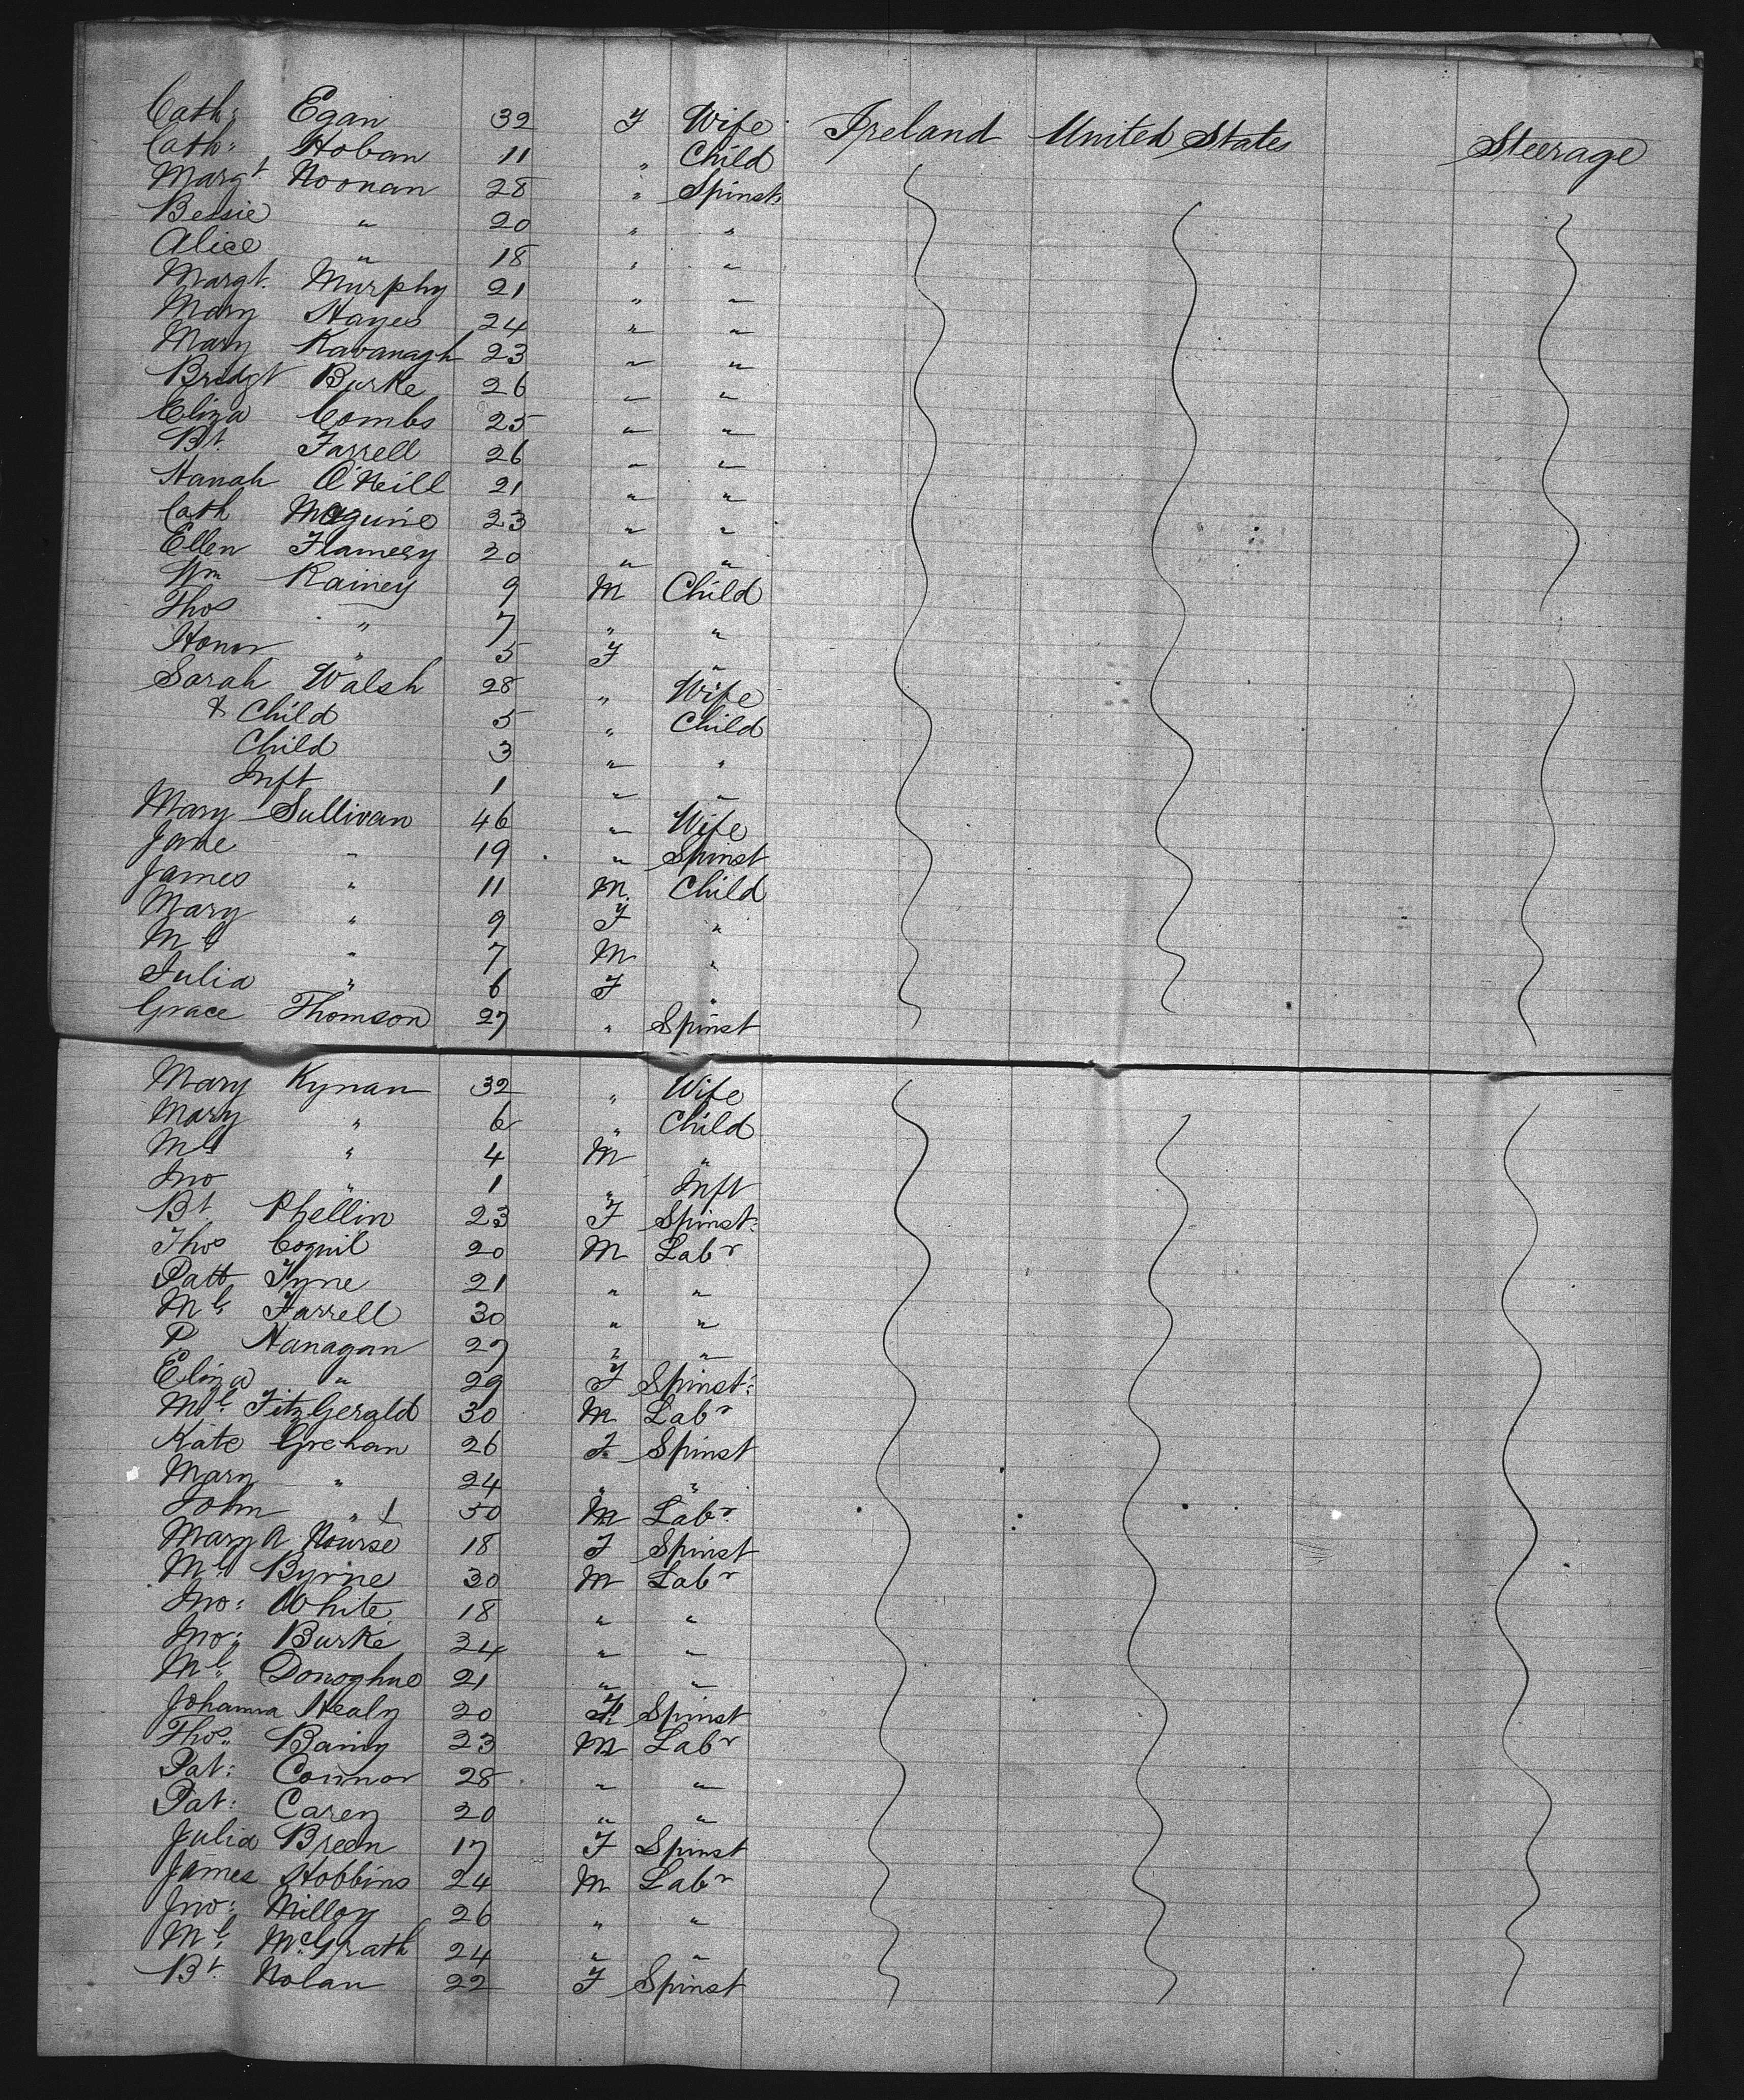 Cath: Egan 32 F Wife Ireland United States Steerage
Cath: Hoban 11 " Child
Margt Noonan 28 " Spinst:
Bessie " 20 " "
Alice " 18 " "
Margt. Murphy 21 " "
Mary Hayes 24 " "
Mary Kavanagh 23 " "
Bridgt Burke 26 " "
Eliza Combs 25 " "
Bt. Farrell 26 " "
Hanah O'Neill 21 " "
Cath Maguire 23 " "
Ellen Flamery 20 " "
Wm Rainey 9 M Child
Thos " 7 " "
Honor " 5 F "
Sarah Walsh 28 " Wife
& Child 5 " Child
Child 3 " "
Inft 1 " "
Mary Sullivan 46 " Wife
Jane " 19 " Spinst
James " 11 M. Child
Mary " 9 F "
Ml " 7 M "
Julia " 6 F "
Grace Thomson 27 " Spinst
Mary Kynan 32 " Wife
Mary " 6 " Child
Ml " 4 M "
Jno " 1 " Inft
Bt Phellin 23 F Spinst:
Thos 20 M Labr
Patt Tyne 21 " "
Ml. Farrell 30 " "
P. Hanagan 27 " "
Eliza " 29 F Spinst:
Ml. FitzGerald 30 M Labr
Kate Grehan 26 F Spinst
Mary " 24 " "
John " 30 M Labr.
Mary A Nourse 18 F Spinst
Ml. Byrne 30 M Labr
Jno: White 18 " "
Jno: Burke 24 " "
Ml. Donoghue 21 " "
Johanna Healy 20 F Spinst
Thos. 23 M Labr
Pat: Connor 28 " "
Pat: Carey 20 " "
Julia Breen 17 F Spinst
James Hobbins 24 M Labr
Jno: Milloy 26 " "
Ml. McGrath 24 " "
Bt. Nolan 22 F Spinst